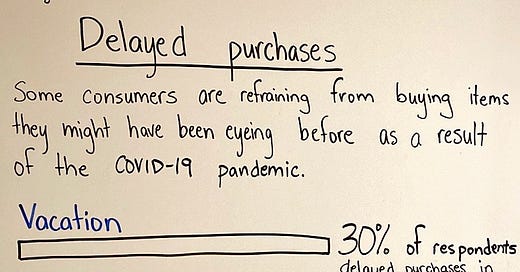 Delayed purchases
Some consumers are refraining from buying items
they might have been eyeing before as a result
of the COVID-19 pandemic.
Vacation
30% of respondents
delayed purchases in